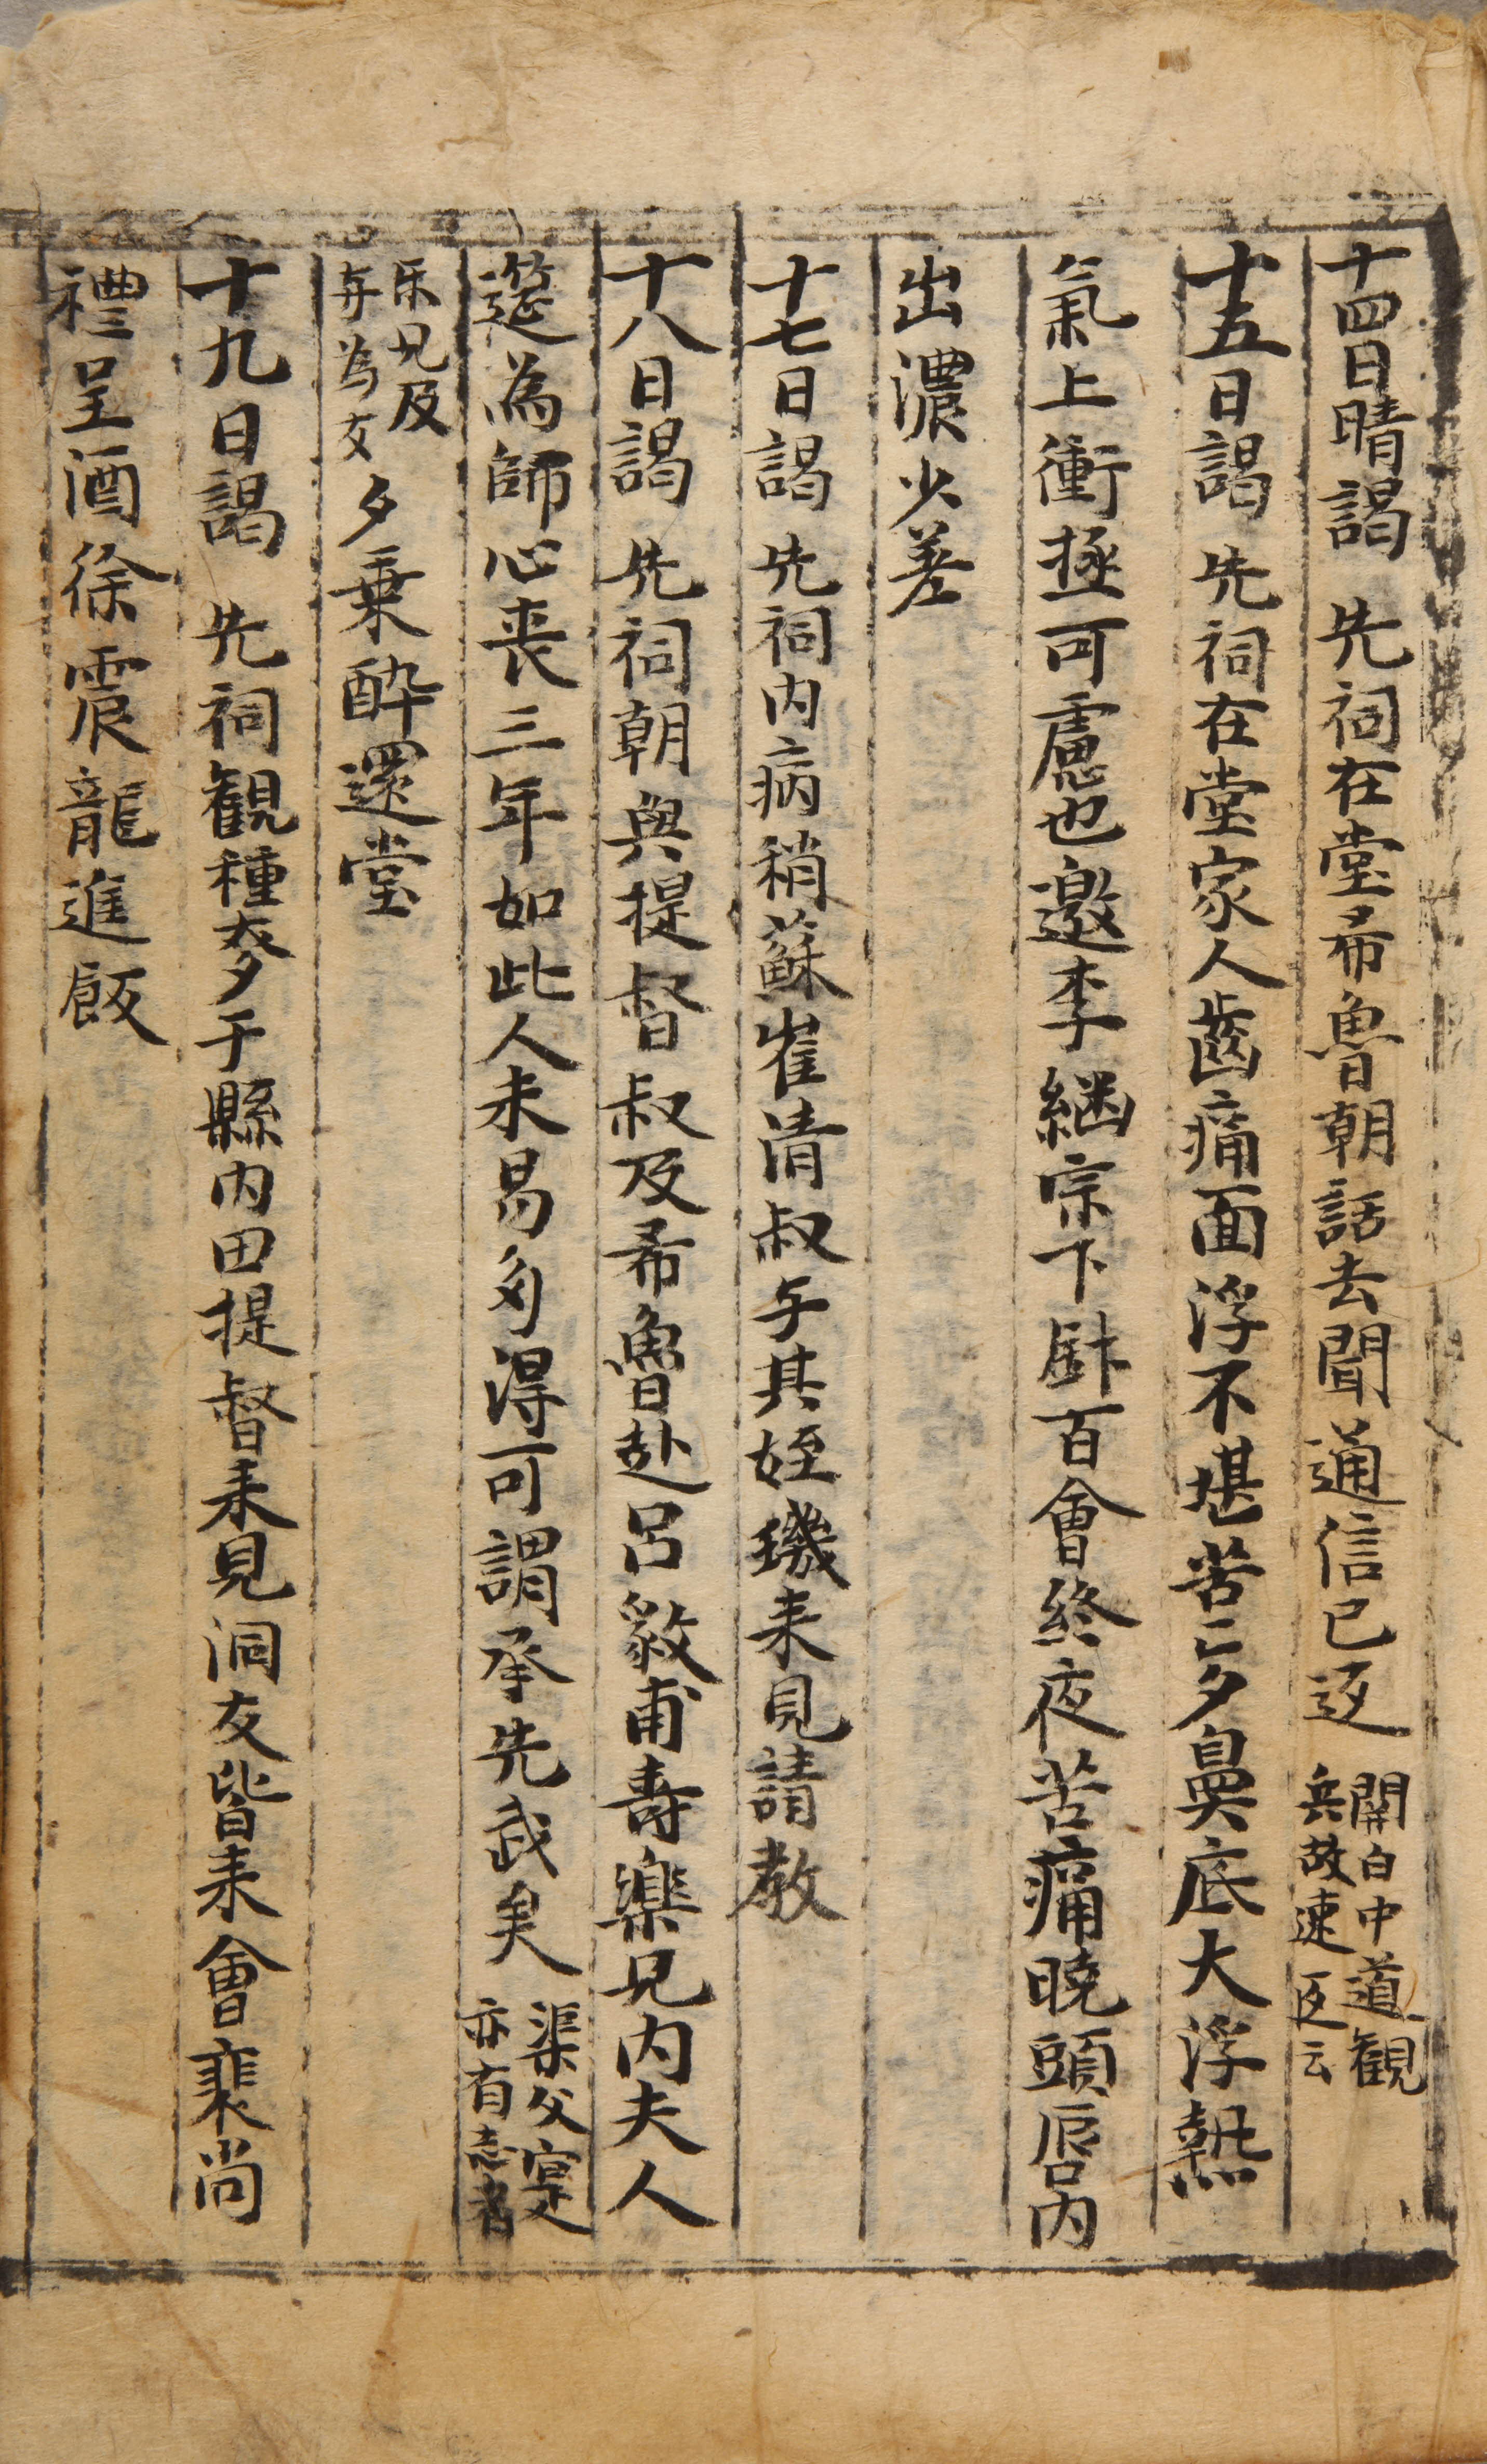 十四日晴謁 先祠在堂希魯朝話去聞通信已返 開白中道觀兵故速返云
十五日謁 先祠在堂家人齒痛面浮不堪苦ミ夕鼻底大浮熱
氣上衝極可慮也邀李継宗下針百會終夜苦痛曉頭唇内
出濃少差
十七日謁 先祠内病稍蘇崔清叔与其姪璣来見請教
十八日謁 先祠朝與提督叔及希魯赴呂敹甫壽樂兄内夫人
筵為師心喪三年如此人未易多得可謂承先武矣 渠父寔亦有志者
乐兄及弁為友 夕乗酔還堂
十九日謁 先祠観種麥于縣内田提督来見洞友皆来會裴尚
禮呈酒徐震龍進飯